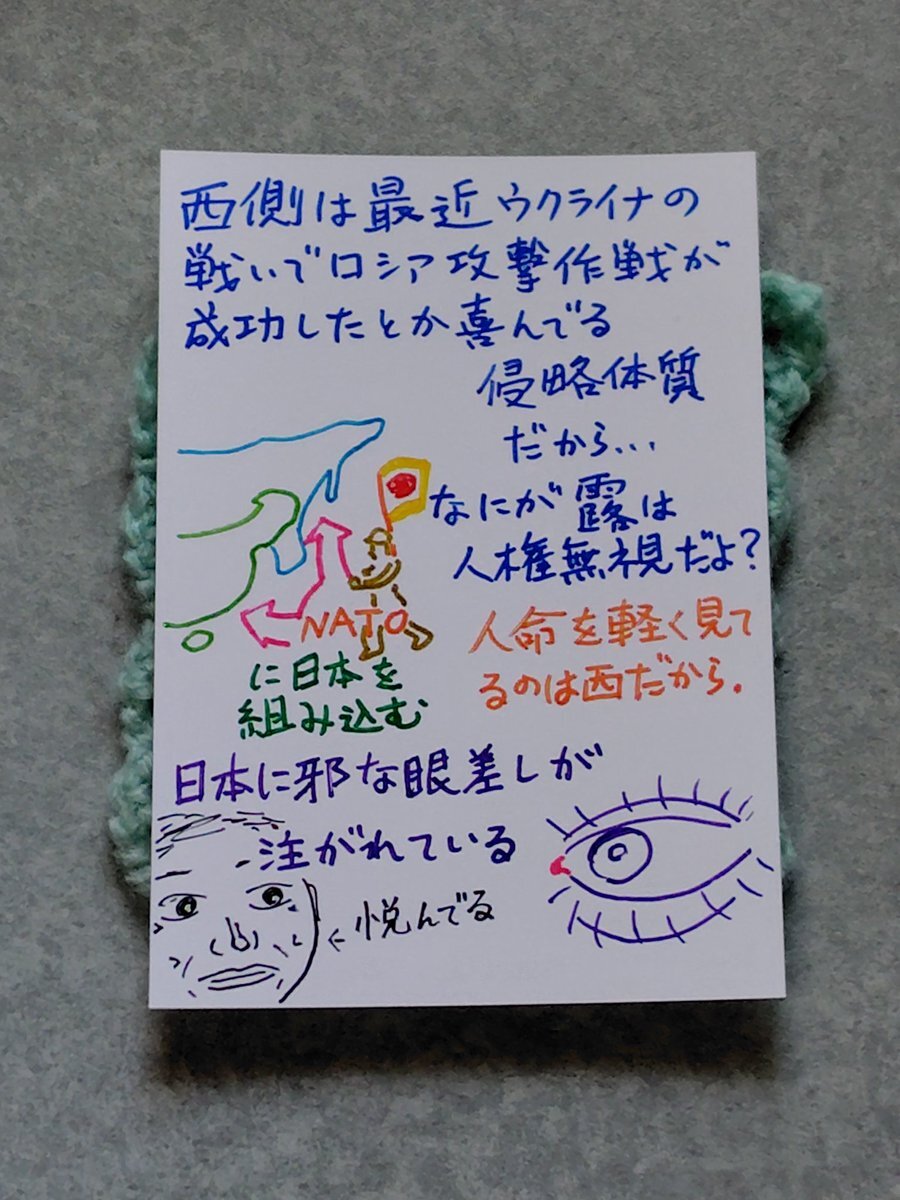 西側は最近ウクライナの
戦いでロシア攻撃作戦が
成功したとか喜んでる
侵略体質
だから...
なにが露は
人権無視だよ?
NATO
に日本を
組み込む
人命を軽く見て
るのは西だから.
日本に邪な眼差しが
注がれている
←悦んでる